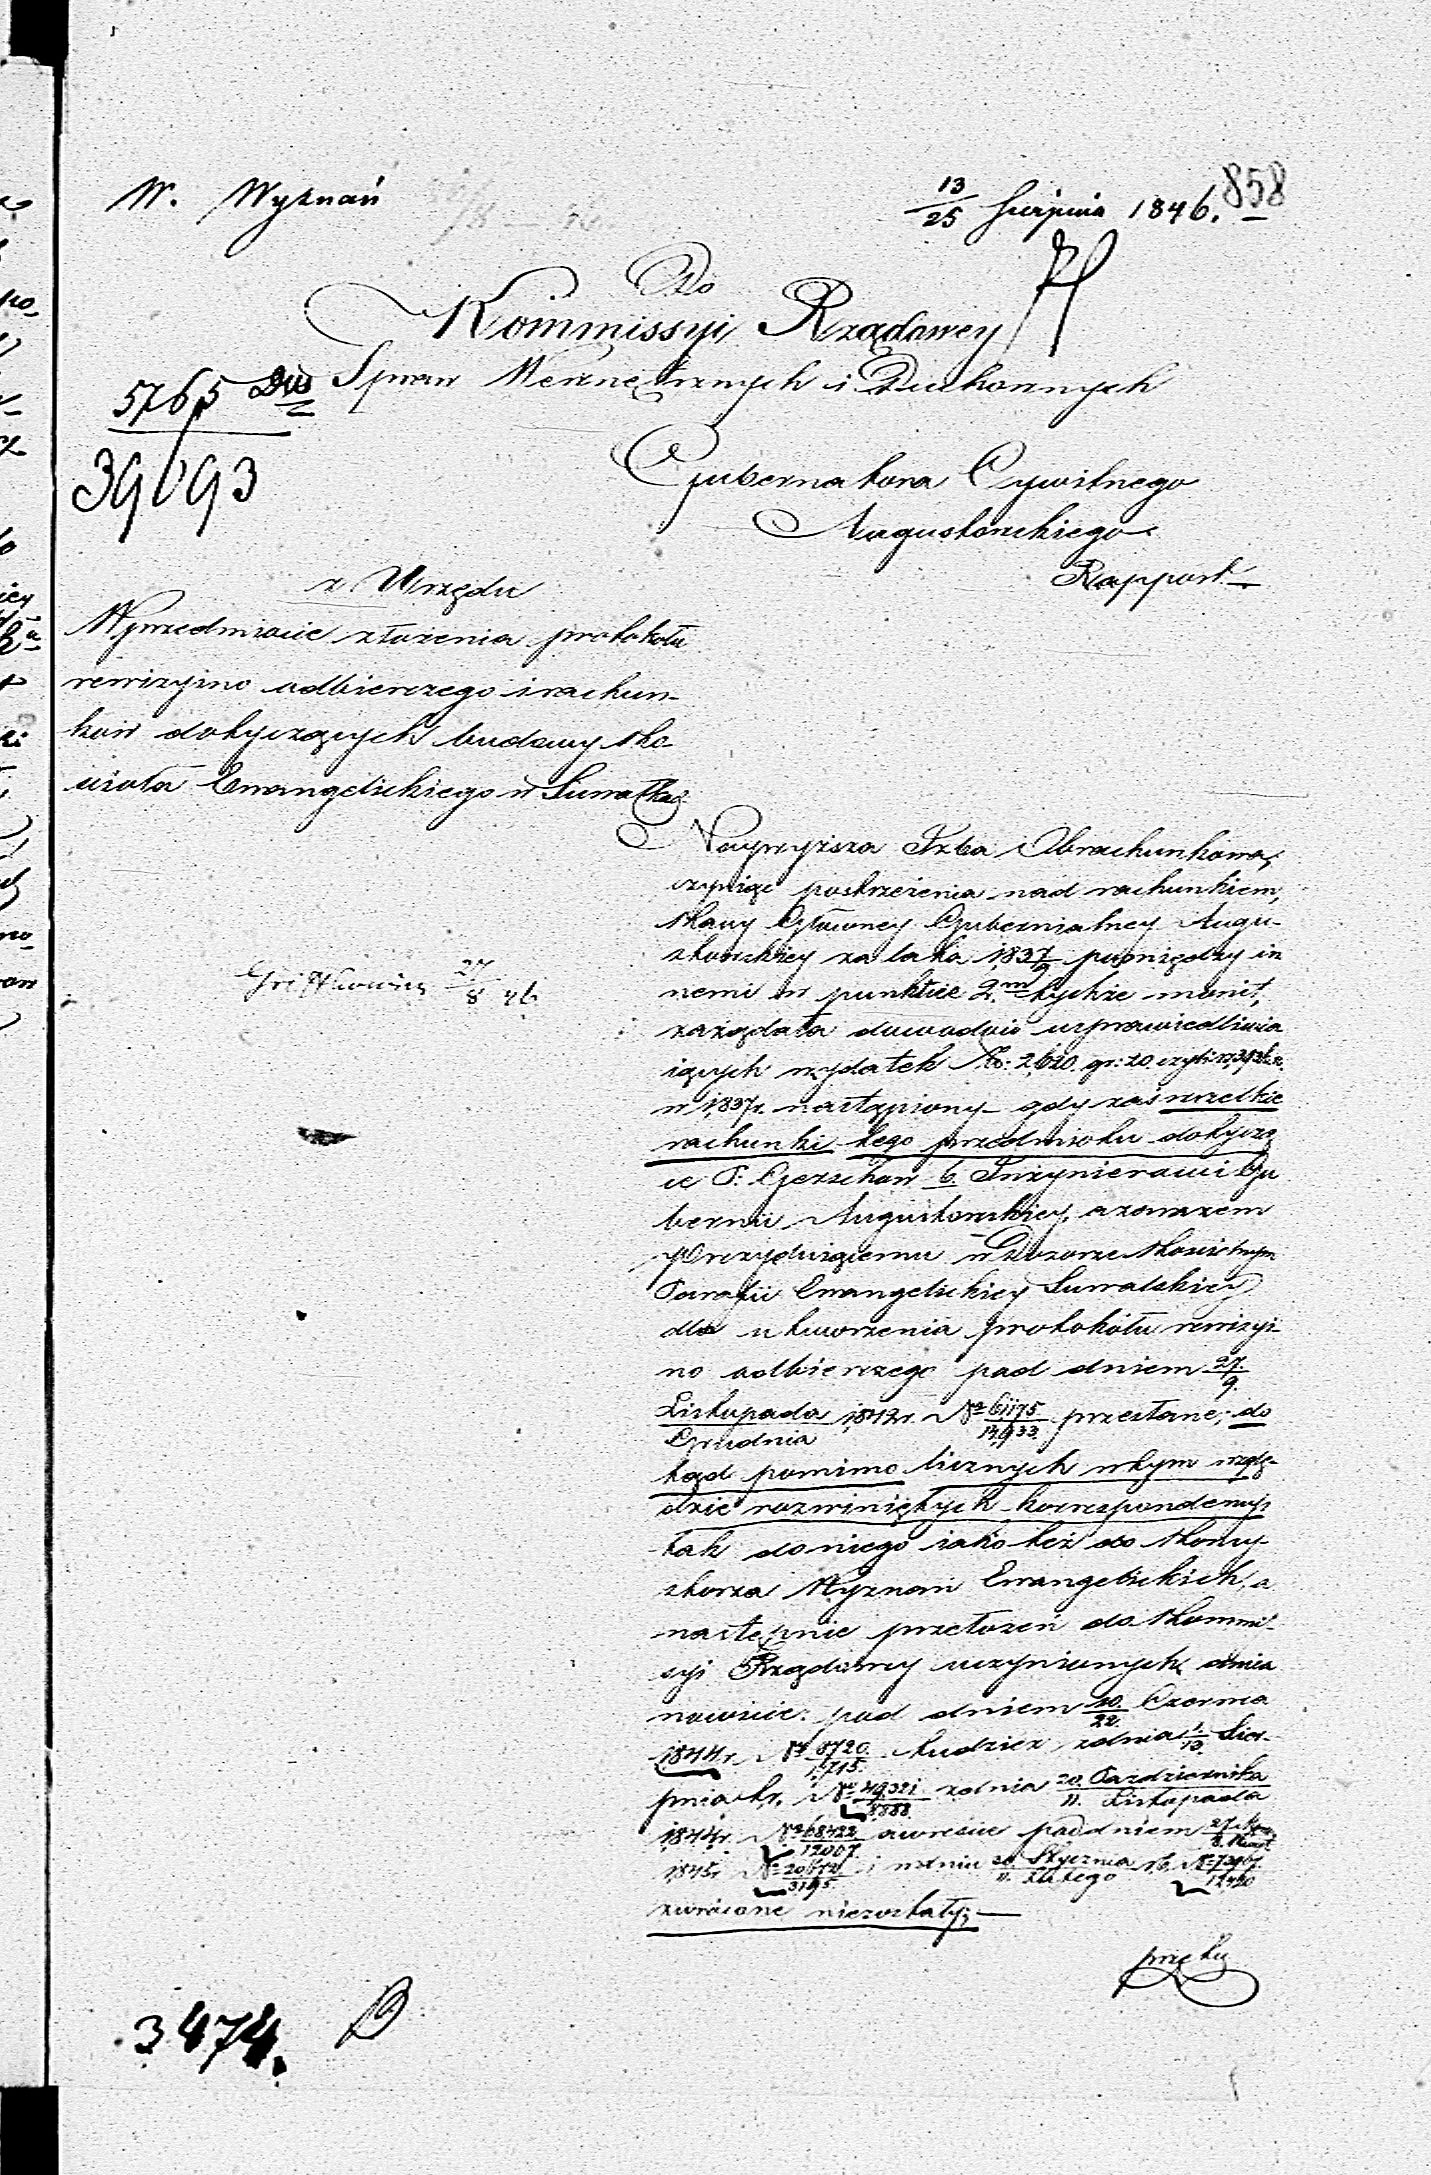 W. Wyznań
13/25 Sierpnia 1846.
858
Do
Kommissyi Rządowey
Spraw Wewnętrznych i Duchownych
5765 Dws
39093
Gubernatora Cywilnego
Augustowskiego
Rapport
z Urzędu
W przedmiocie złożenia protokołu
rewizyino odbierczego i rachun-
ków dotyczących budowy Ko-
ścioła Ewangelickiego w Suwałkach
27/8 46
Naywyższa Izba Obrachunkowa,
czyniąc postrzeżenia nad rachunkiem,
Kassy Główney Gubernialney Augu-
stowskiey za lata 1837/9 pomiędzy in
nemi w punkcie 2m tychże monit,
zażądała dowodów usprawiedliwia
iących wydatek Zł: 2,620. gr: 20. czyli
w 1837r. nastąpiony gdy zaś wszelkie
rachunki tego przedmiotu dotyczą
ce P: Gerschow b. Inżynierowi Gu
bernii Augustowskiey, a zarazem
Prezyduiącemu w Dozorze Kościelnym
Parafii Ewangelickiey Suwalskiey
dla utworzenia protokółu rewizyi-
no odbierczego pod dniem 27./9.
Listopada/Grudnia 1842r. No 61175/14933 przesłane, do
tąd pomimo licznych w tym wzglę-
dzie rozwiniętych korrespondencyi
tak do niego iako też do Konsy-
storza Wyznań Ewangelickich, a
następnie przełożeń do Kommis-
syi Rządowey uczynionych, a mia
nowicie: pod dniem 10./22. Czerwca
1844r. No 8720/1,715. tudzież z dnia 1/13. Sier-
pnia t.r. No 49321/8888. z dnia 20. Października/11. Listopada
1844r. No 68422/12007. a wreście pod dniem 27.
1845r. No 20672/3195. i w dniu 30. Stycznia/11. Lutego
zwrócone niezostały;
przeto
3474.